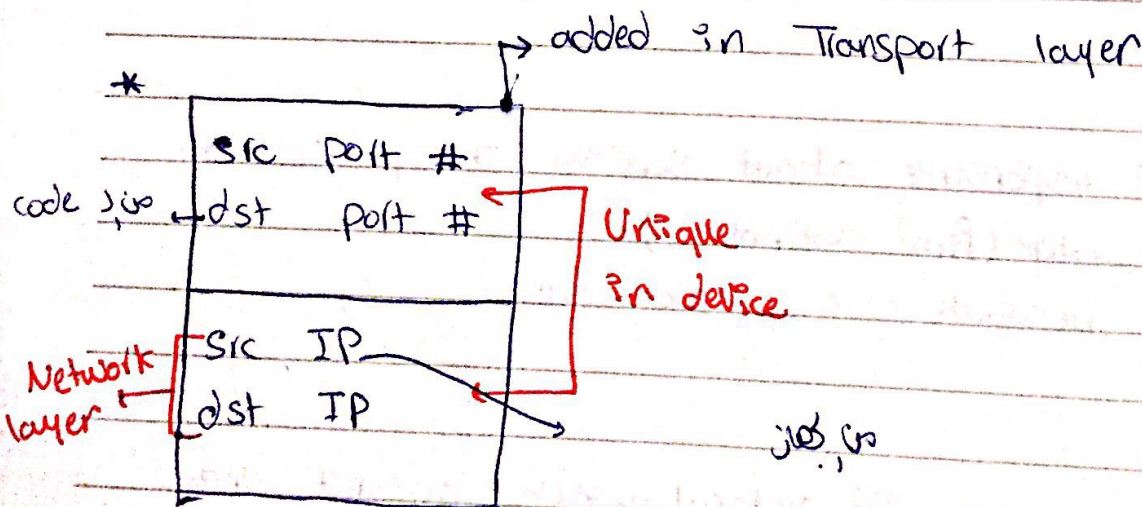 added in Transport layer
*
src port #
code من ← dst port #
Unique
in device
src IP
Network
layer
dst IP
من